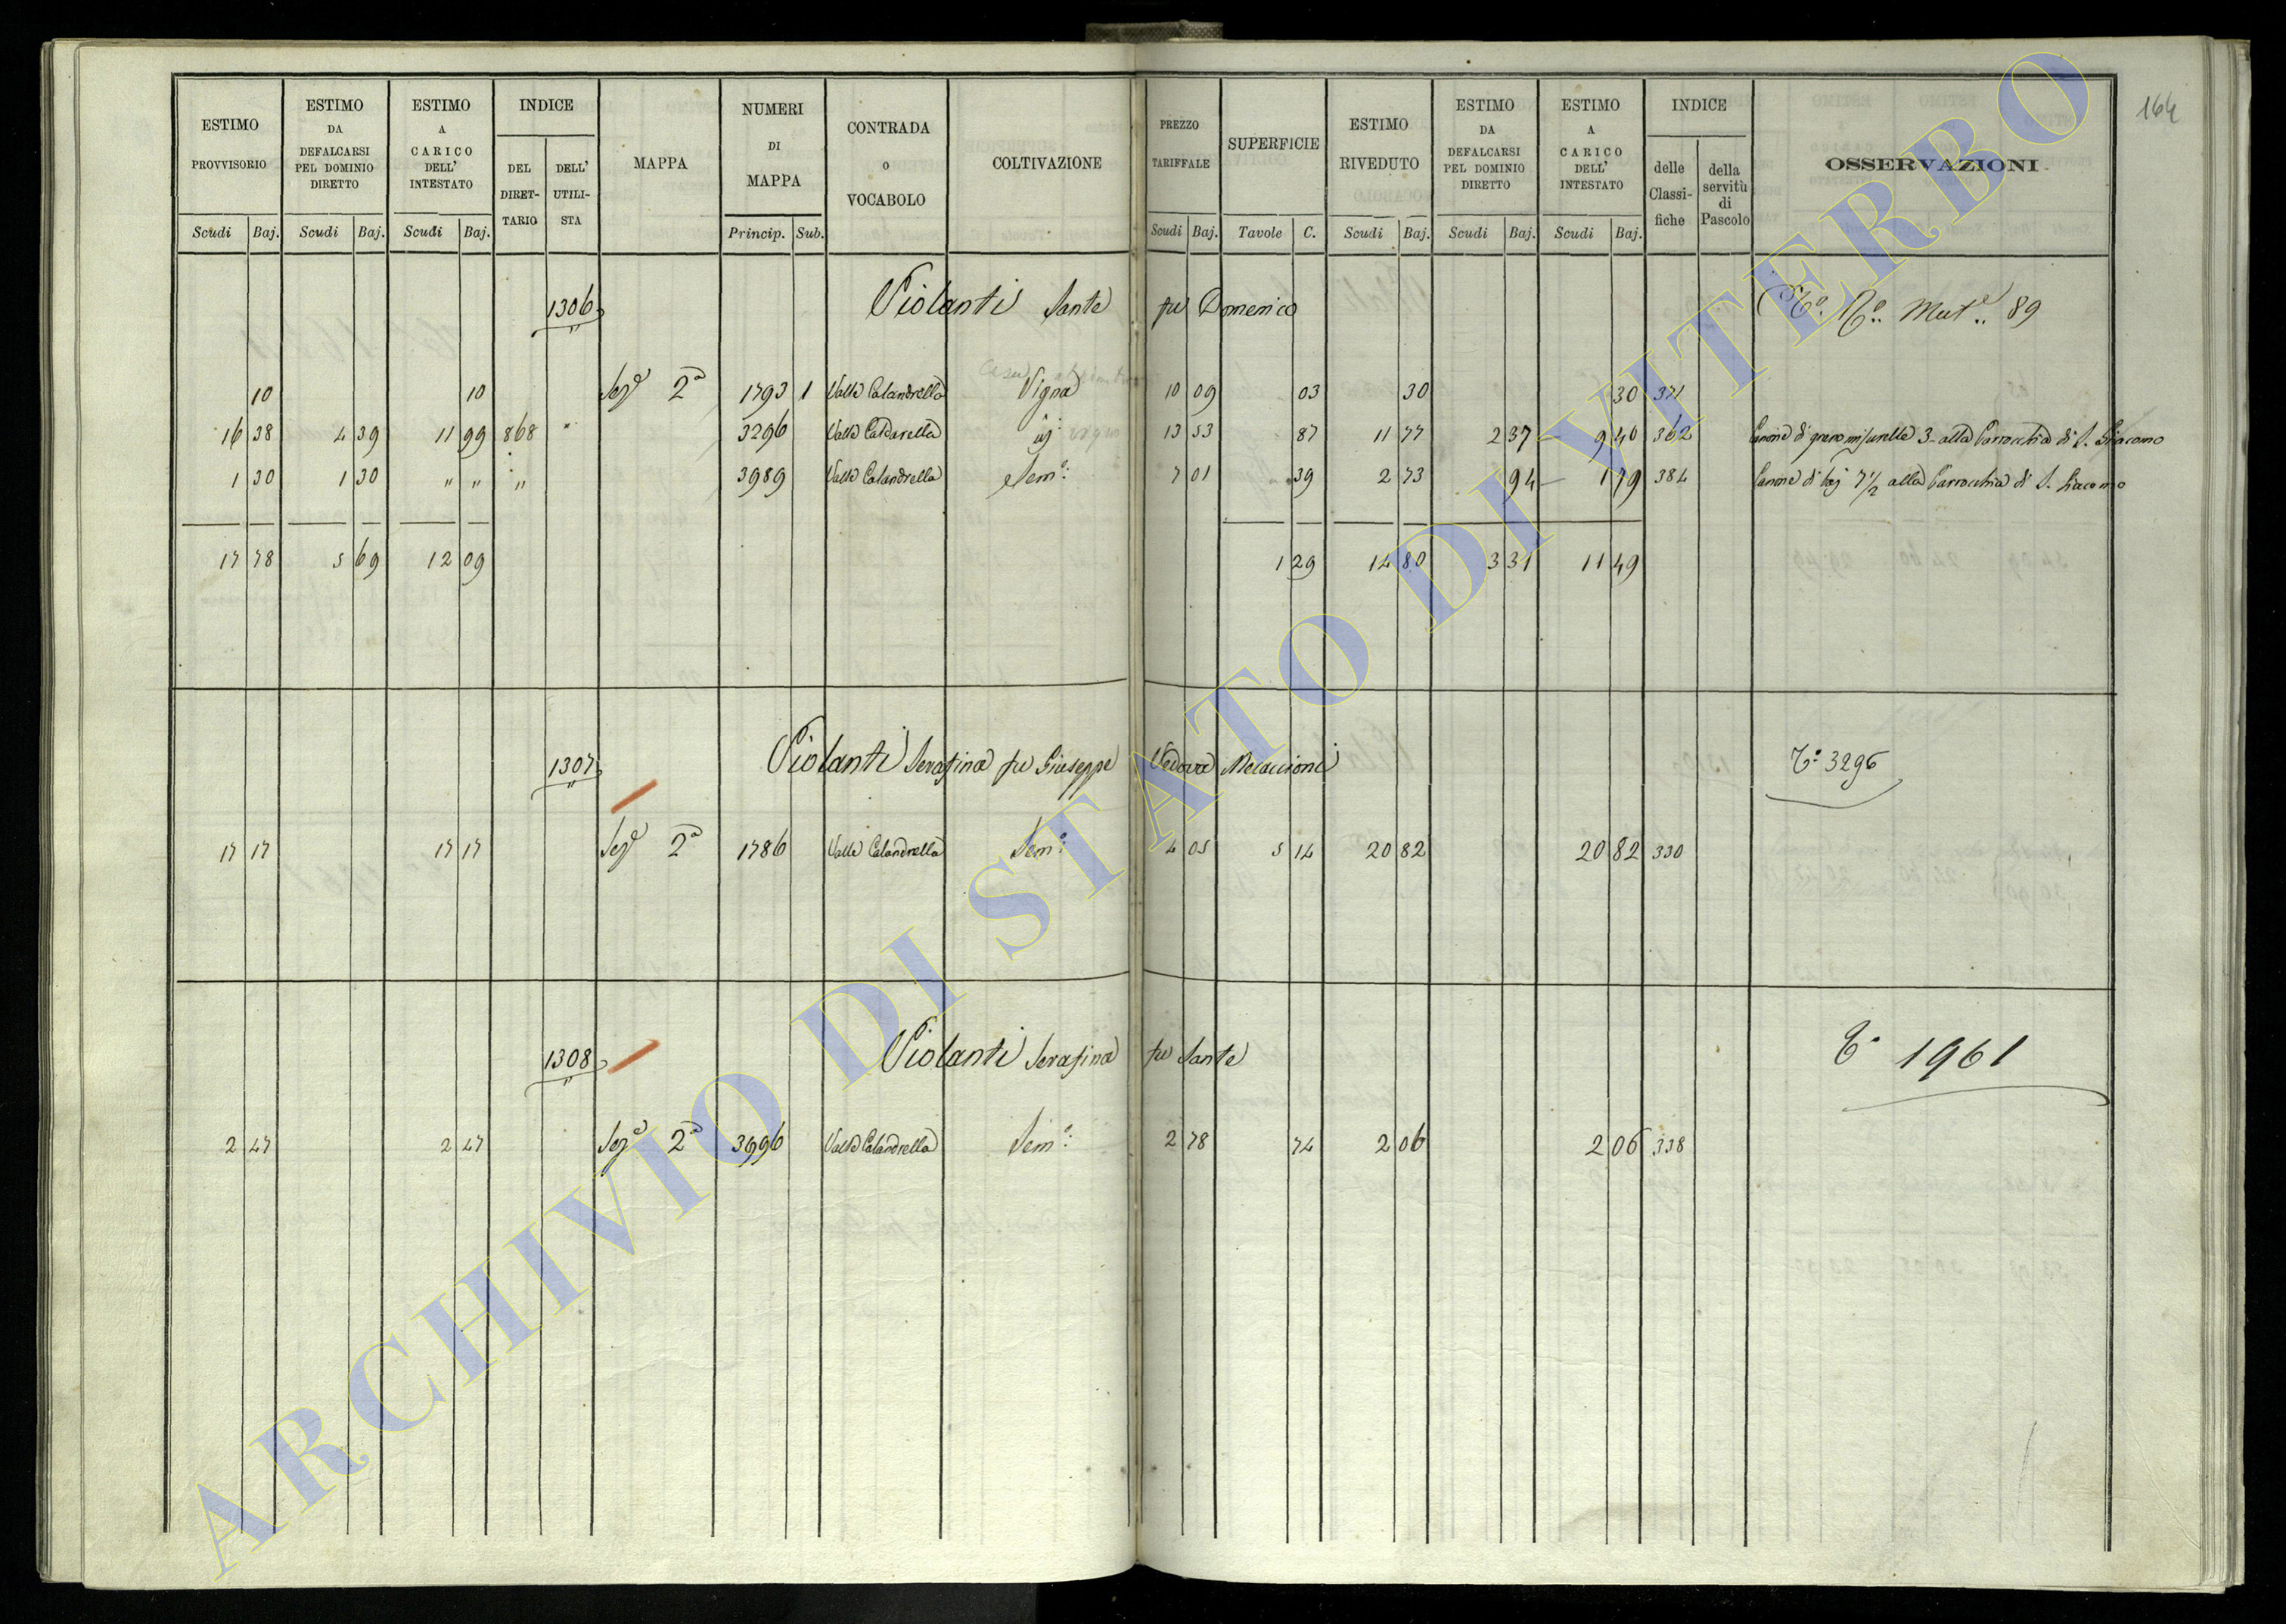 164
ESTIMO PROVVISORIO
Scudi Baj.
ESTIMO DA DEFALCARSI PEL DOMINIO DIRETTO
Scudi Baj.
ESTIMO A CARICO DELL' INTESTATO
Scudi Baj.
INDICE
DEL DIRET- TARIO
DELL' UTILI- STA
MAPPA
NUMERI DI MAPPA
Princip. Sub.
CONTRADA o VOCABOLO
COLTIVAZIONE
PREZZO TARIFFALE
Scudi Baj.
SUPERFICIE
Tavole C.
ESTIMO RIVEDUTO
Scudi Baj.
ESTIMO DA DEFALCARSI PEL DOMINIO DIRETTO
Scudi Baj.
ESTIMO A CARICO DELL' INTESTATO
Scudi Baj.
INDICE
delle Classi- fiche
della servitù di Pascolo
OSSERVAZIONI
1306 Violanti Sante fu Domenico Mut.e 89
10 10 Sez.e 2a 1793 1 Valle Calandrella Vigna 10 09 03 30 30 371
16 38 4 39 11 99 868 " 3296 Valle Caldarella id 13 53 87 11 77 2 37 9 40 362 Canone di grano misurelle 3 alla Parrocchia di S. Giacomo
1 30 1 30 " " " 3989 Valle Calandrella Sem.o 7 01 39 2 73 94 1 79 384 Canone di baj 7 1/2 alla Parrocchia di S. Giacomo
17 78 5 69 12 09 1 29 14 80 3 31 11 49
1307 Violanti Serafina fu Giuseppe Vedova Mecaccioni To 3296
17 17 17 17 Sez.e 2a 1786 Valle Calandrella Sem.o 4 05 5 14 20 82 20 82 330
1308 Violanti Serafina fu Sante To 1961
2 47 2 47 Sez.e 2a 3696 Valle Calandrella Sem.o 2 78 74 2 06 2 06 338
ARCHIVIO DI STATO DI VITERBO